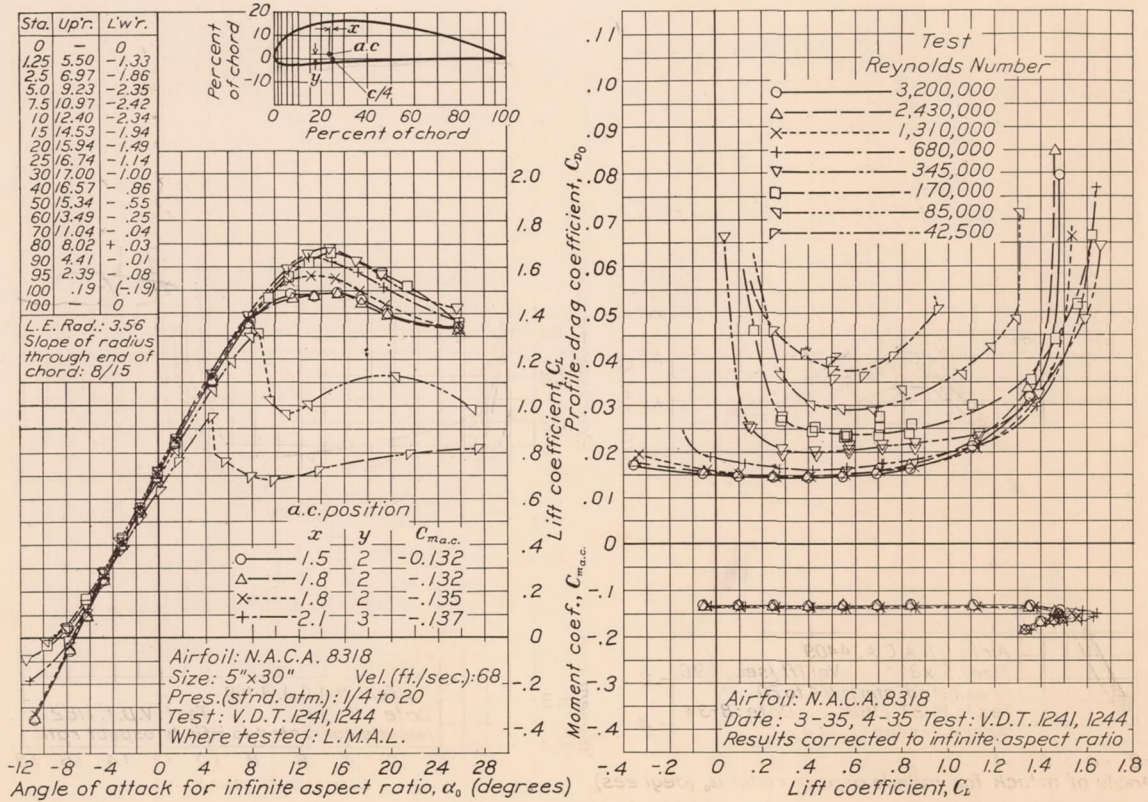 Sta. Up'r. L'w'r.
0 – 0
1.25 5.50 -1.33
2.5 6.97 -1.86
5.0 9.23 -2.35
7.5 10.97 -2.42
10 12.40 -2.34
15 14.53 -1.94
20 15.94 -1.49
25 16.74 -1.14
30 17.00 -1.00
40 16.57 - .86
50 15.34 - .55
60 13.49 - .25
70 11.04 - .04
80 8.02 + .03
90 4.41 - .01
95 2.39 - .08
100 .19 (-.19)
100 – 0
L.E. Rad.: 3.56
Slope of radius
through end of
chord: 8/15
Percent
of chord
20
10
0
-10
x
a.c
y
c/4
0 20 40 60 80 100
Percent of chord
2.0
1.8
1.6
1.4
1.2
1.0
.8
.6
.4
.2
0
-.2
-.4
Lift coefficient, CL
a.c. position
x y Cma.c.
1.5 2 -0.132
1.8 2 -.132
1.8 2 -.135
2.1 3 -.137
Airfoil: N.A.C.A. 8318
Size: 5"x30" Vel.(ft./sec.):68
Pres.(st'nd. atm.): 1/4 to 20
Test: V.D.T. 1241,1244
Where tested: L.M.A.L.
-12 -8 -4 0 4 8 12 16 20 24 28
Angle of attack for infinite aspect ratio, α0 (degrees)
.11
.10
.09
.08
.07
.06
.05
.04
.03
.02
.01
0
-.1
-.2
-.3
-.4
Profile-drag coefficient, CD0
Moment coef., Cma.c.
Test
Reynolds Number
3,200,000
2,430,000
1,310,000
680,000
345,000
170,000
85,000
42,500
Airfoil: N.A.C.A. 8318
Date: 3-35, 4-35 Test: V.D.T. 1241, 1244
Results corrected to infinite aspect ratio
-.4 -.2 0 .2 .4 .6 .8 1.0 1.2 1.4 1.6 1.8
Lift coefficient, CL